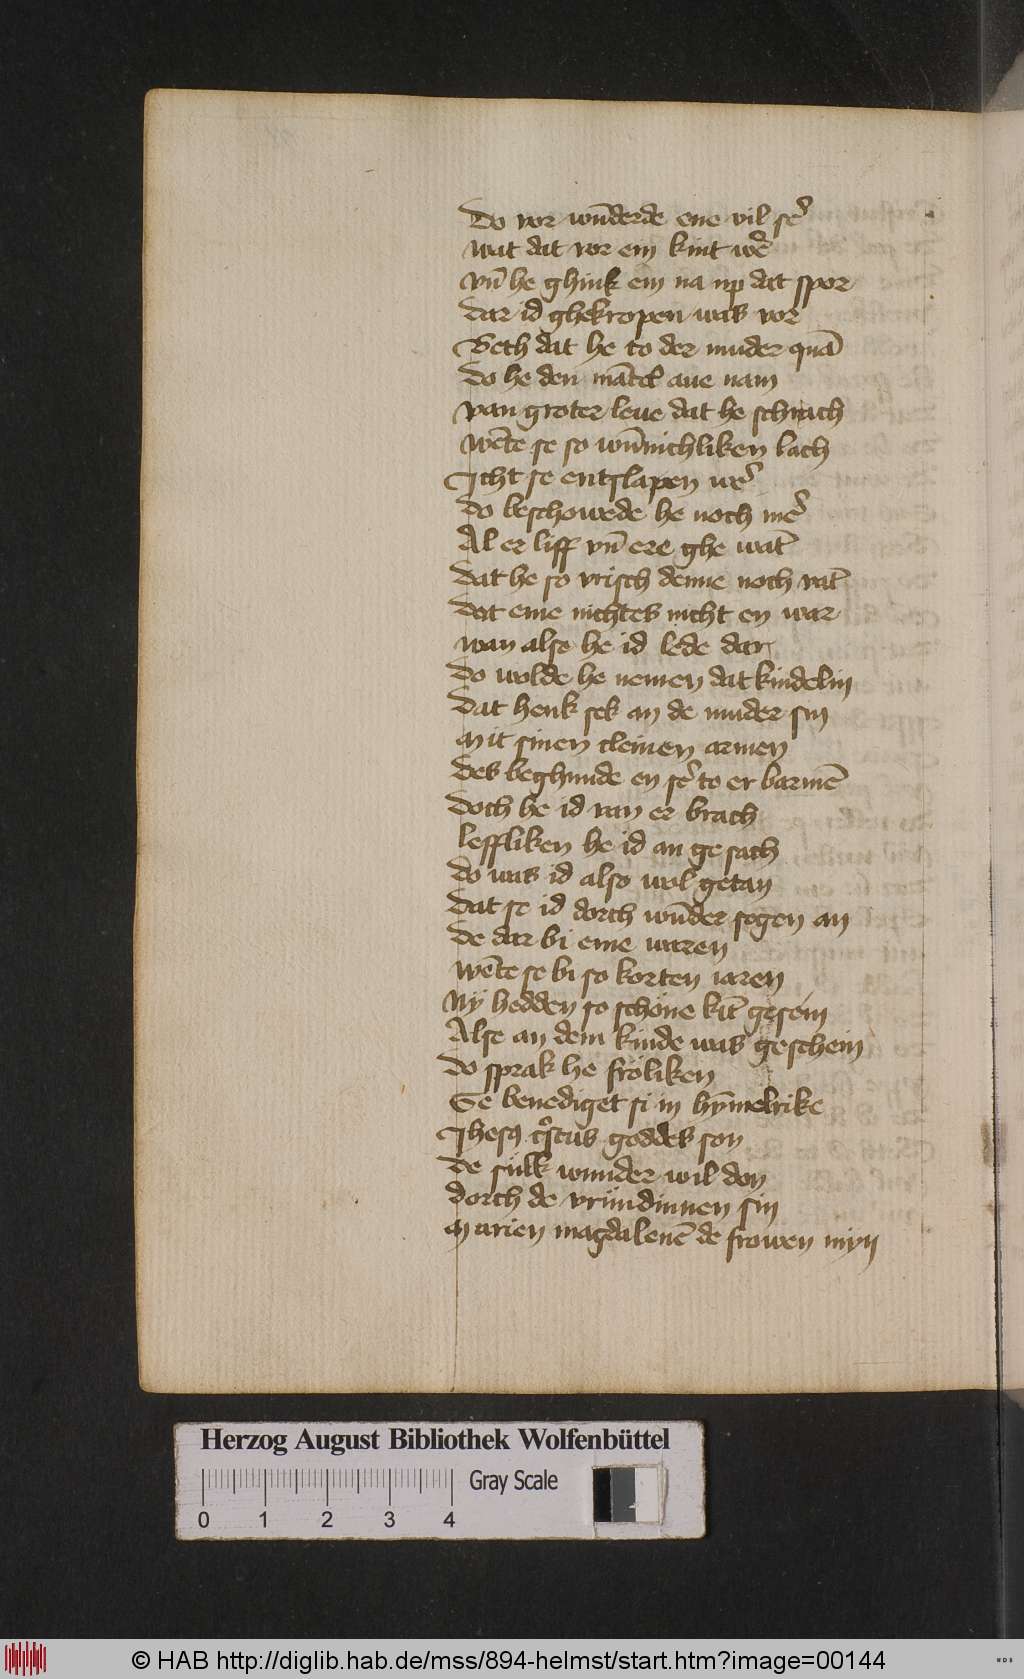 Do vor wūderde ene vil sē
wat dat vor ein kint wē
vn̄ he ghink em na up dat spor
dar id ghekropen was vor
Beth dat he to der muder quā
Do he den mātel aue nam
van groter leue dat he schrach
wēte se so wūnichliken lach
Icht se entslapen wē
Do beschowede he noch mē
Al er liff vn̄ ere ghe wāt
dat he so vrisch denne noch vāt
dat eme nichtes nicht en war
wan alse he id lede dar
do wolde he nemen dat kindelin
dat henk sek an de muder sin
Mit sinen cleinen armen
des beghunde en sē to er barmē
doch he id van er brach
leffliken he id an ge sach
do was id also wol getan
dat se id dorch wūder segen an
de dar bi eme waren
wēte se bi so korten iaren
Ny hedden so schone kīt gesein
Alse an dem kinde was geschein
do sprak he froliken
Ge benediget si in hȳmelrike
Ihesꝯ cr̄stus goddes son
de sulk wunder wil don
dorch de vrundinnen sin
Marien magdalenē de frowen myn
Herzog August Bibliothek Wolfenbüttel
Gray Scale
0 1 2 3 4
© HAB http://diglib.hab.de/mss/894-helmst/start.htm?image=00144